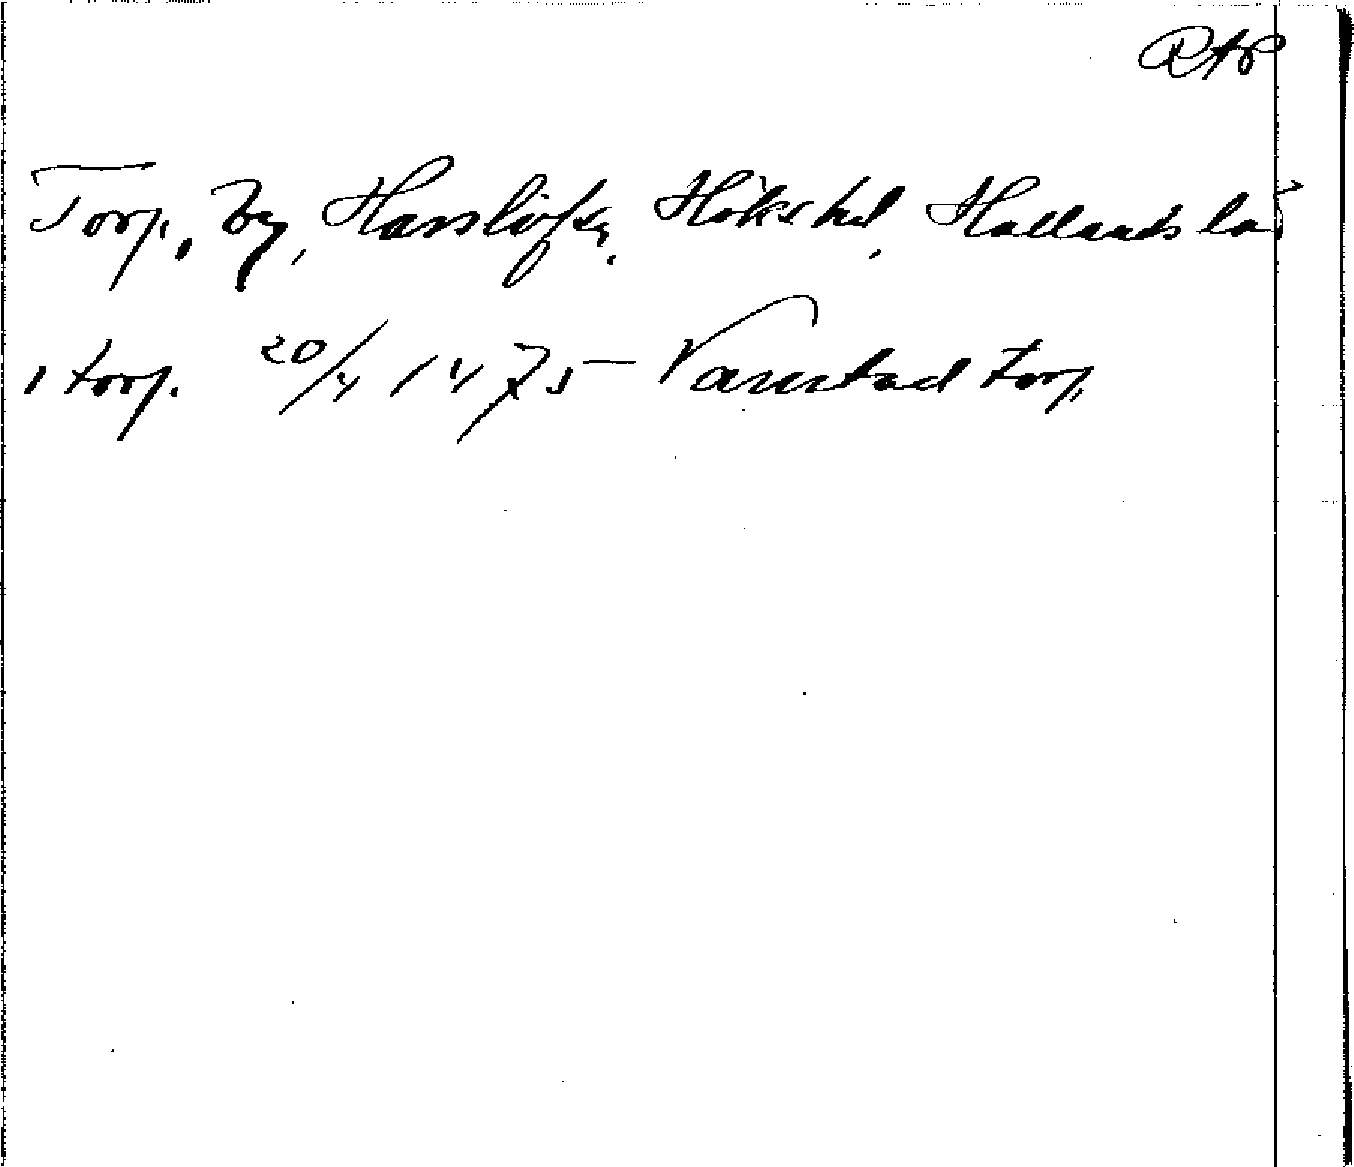 RAP
Torp, by, Hasslöfs sn, Höks hd, Hallands län
1 torp. 20/4 1475 Vannstad torp